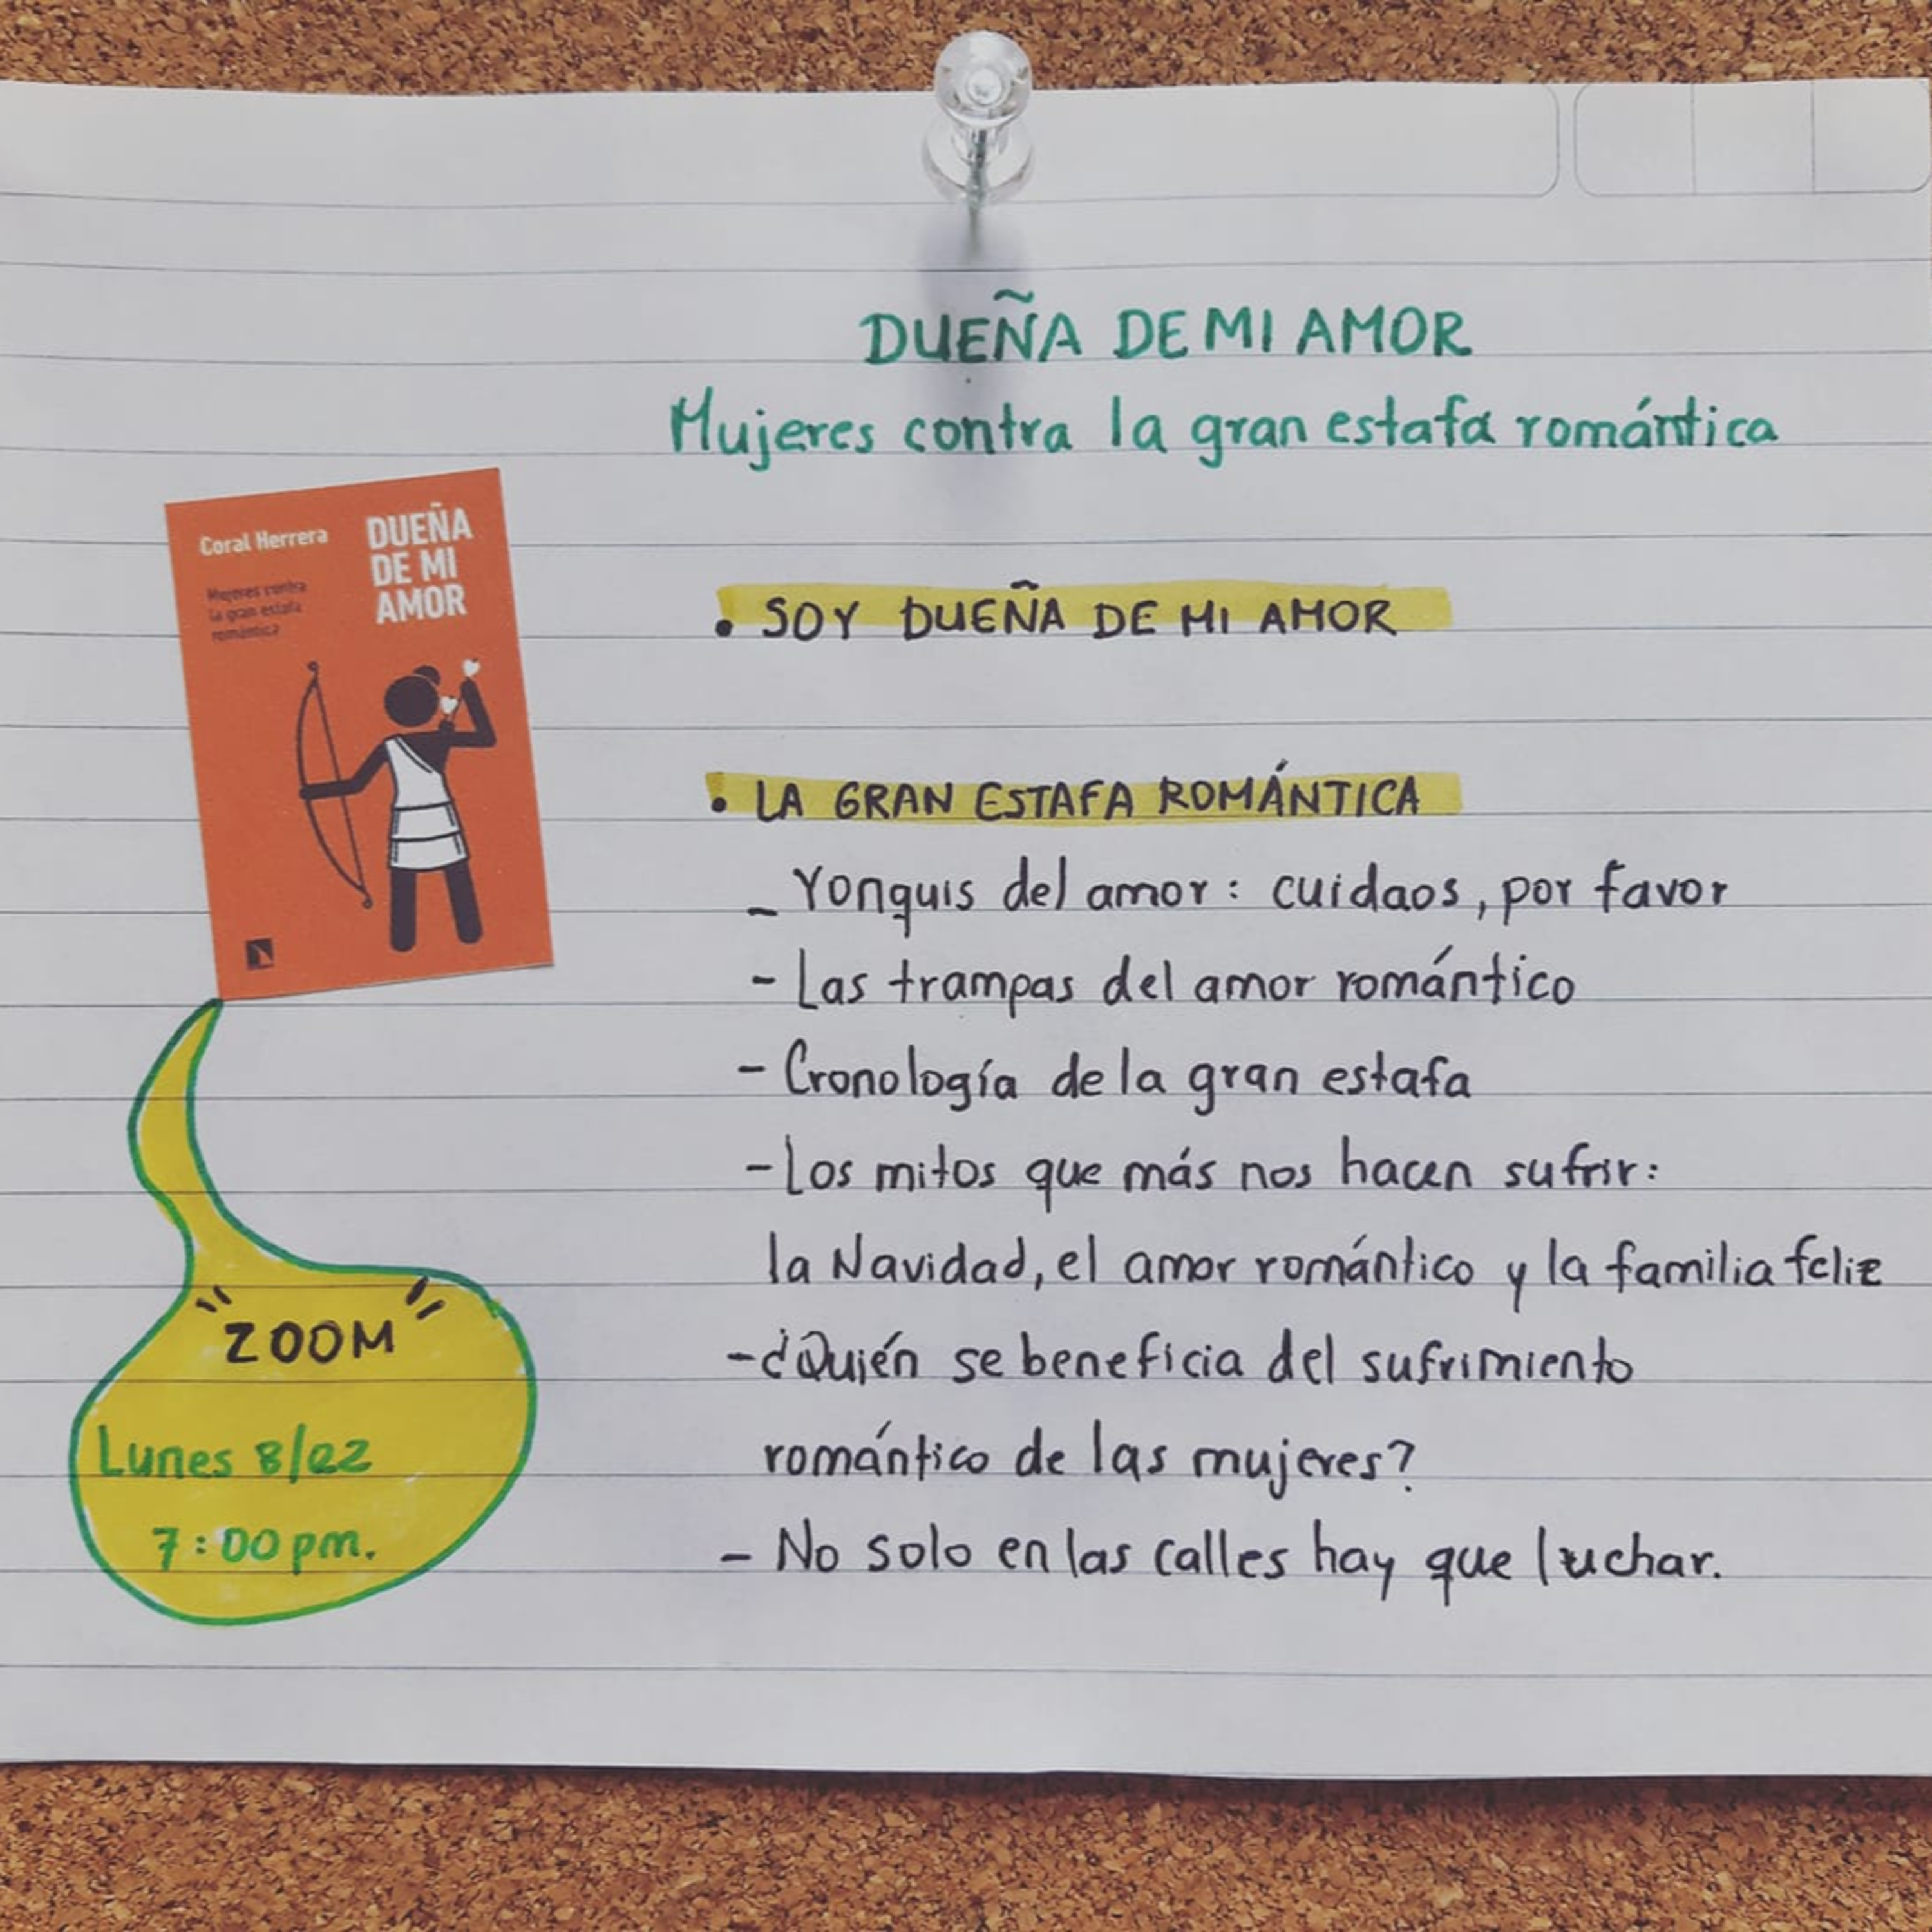 DUEÑA DE MI AMOR
Mujeres contra la gran estafa romántica
Coral Herrera
DUEÑA
DE MI
AMOR
Mujeres contra
la gran estafa
romántica
• SOY DUEÑA DE MI AMOR
• LA GRAN ESTAFA ROMÁNTICA
- Yonquis del amor: cuidaos, por favor
- Las trampas del amor romántico
- Cronología de la gran estafa
- Los mitos que más nos hacen sufrir:
la Navidad, el amor romántico y la familia feliz
- ¿Quién se beneficia del sufrimiento
romántico de las mujeres?
- No solo en las calles hay que luchar.
ZOOM
Lunes 8/22
7:00 pm.